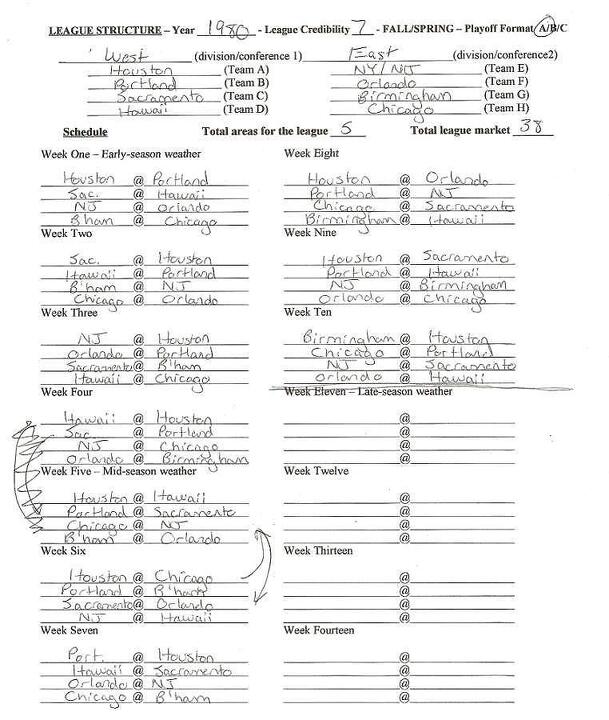 LEAGUE STRUCTURE – Year 1980 - League Credibility 7 - FALL/SPRING – Playoff Format A/B/C
West (division/conference 1) East (division/conference2)
Houston (Team A) NY/NJ (Team E)
Portland (Team B) Orlando (Team F)
Sacramento (Team C) Birmingham (Team G)
Hawaii (Team D) Chicago (Team H)
Schedule Total areas for the league 5 Total league market 38
Week One – Early-season weather
Houston @ Portland
Sac. @ Hawaii
NJ @ Orlando
B'ham @ Chicago
Week Two
Sac. @ Houston
Hawaii @ Portland
B'ham @ NJ
Chicago @ Orlando
Week Three
NJ @ Houston
Orlando @ Portland
Sacramento @ B'ham
Hawaii @ Chicago
Week Four
Hawaii @ Houston
Sac. @ Portland
NJ @ Chicago
Orlando @ Birmingham
Week Five – Mid-season weather
Houston @ Hawaii
Portland @ Sacramento
Chicago @ NJ
B'ham @ Orlando
Week Six
Houston @ Chicago
Portland @ B'ham
Sacramento @ Orlando
NJ @ Hawaii
Week Seven
Port. @ Houston
Hawaii @ Sacramento
Orlando @ NJ
Chicago @ B'ham
Week Eight
Houston @ Orlando
Portland @ NJ
Chicago @ Sacramento
Birmingham @ Hawaii
Week Nine
Houston @ Sacramento
Portland @ Hawaii
NJ @ Birmingham
Orlando @ Chicago
Week Ten
Birmingham @ Houston
Chicago @ Portland
NJ @ Sacramento
Orlando @ Hawaii
Week Eleven – Late-season weather
@
@
@
@
Week Twelve
@
@
@
@
Week Thirteen
@
@
@
@
Week Fourteen
@
@
@
@